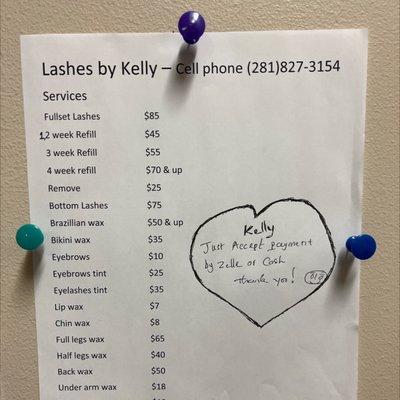 Lashes by Kelly – Cell phone (281)827-3154
Services
Fullset Lashes $85
1,2 week Refill $45
3 week Refill $55
4 week refill $70 & up
Remove $25
Bottom Lashes $75
Brazillian wax $50 & up
Bikini wax $35
Eyebrows $10
Eyebrows tint $25
Eyelashes tint $35
Lip wax $7
Chin wax $8
Full legs wax $65
Half legs wax $40
Back wax $50
Under arm wax $18
Kelly
Just Accept payment
by Zelle or Cash
thank you!